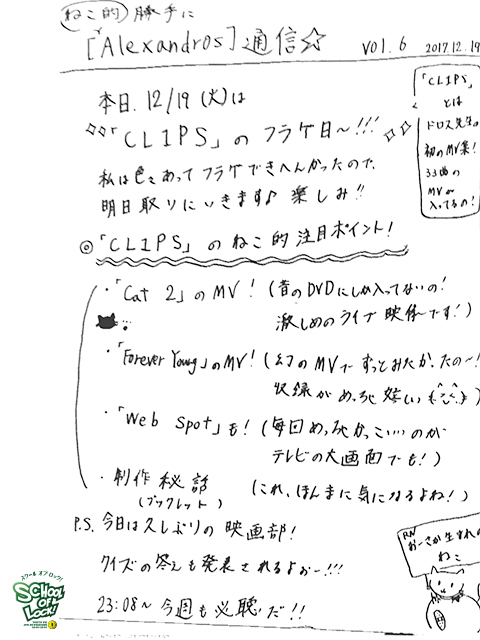 ねこ的 勝手に
[Alexandros]通信☆ vol.6 2017.12.19
本日、12/19(火)は
「CLIPS」のフラゲ日〜!!!
私は色々あってフラゲできへんかったので、
明日取りにいきます♪ 楽しみ!!
「CLIPS」
とは
ドロス先生の
初のMV集!
33曲の
MVが
入ってるの!
◎「CLIPS」のねこ的注目ポイント!
・「Cat 2」のMV! (昔のDVDにしか入ってないの!
激しめのライブ映像です!)
・「Forever Young」のMV! (幻のMVでずっとみたかったの〜!
収録がめっちゃ嬉しい
・「Web Spot」も! (毎回めっちゃかっこいいのが
テレビの大画面でも!)
・制作秘話 (これ、ほんまに気になるよね!)
(ブックレット)
P.S. 今日は久しぶりの映画部!
クイズの答えも発表されるよぉー!!!
23:08〜 今週も必聴だ!!
RN
おーさか生まれの
ねこ
スクールオブロック!
SCHOOL OF LOCK!